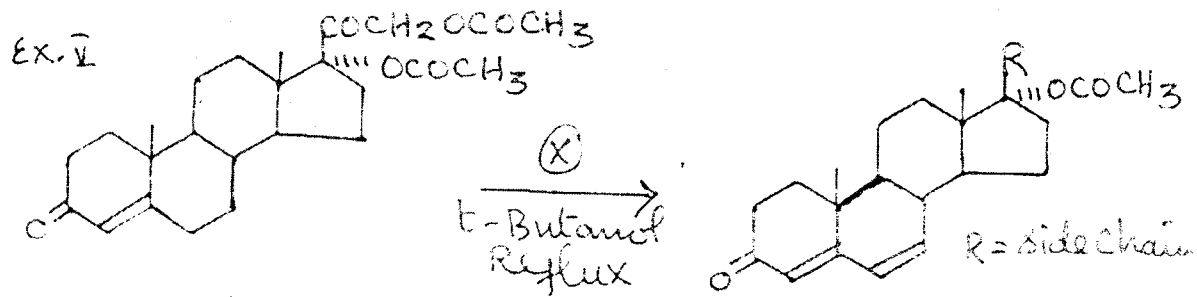 Ex. V
COCH2OCOCH3
OCOCH3
O
X
t-Butanol
Reflux
R
OCOCH3
O
R = side chain